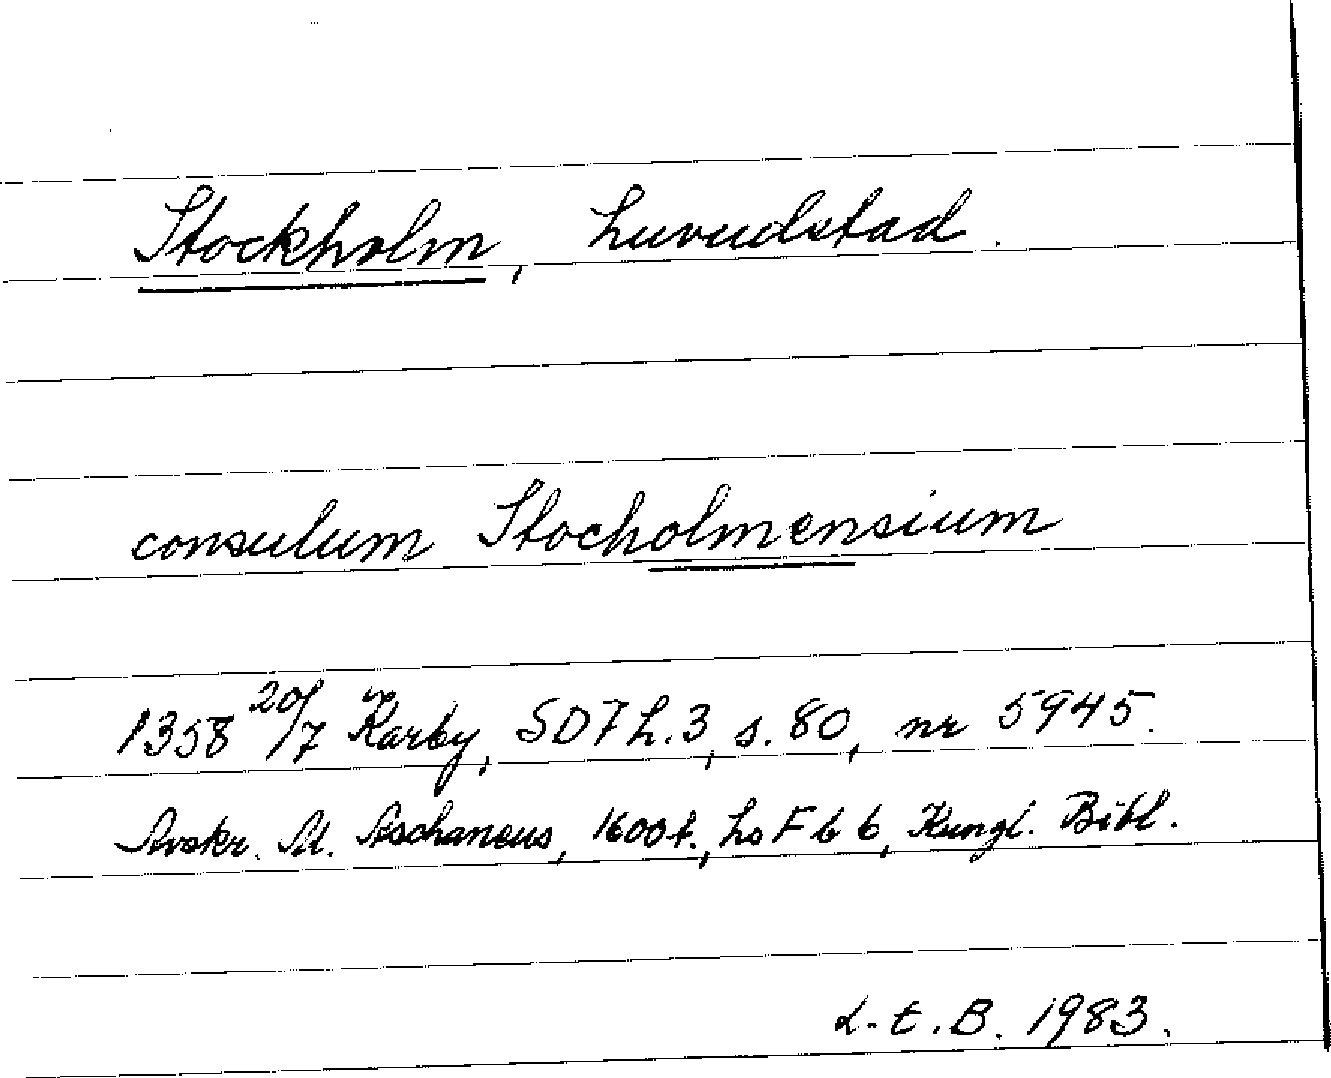 Stockholm, huvudstad.
consulum Stocholmensium
1358 20/7 Karby, SD 7 h. 3, s. 80, nr 5945.
Avskr. M. Aschaneus, 1600 t., hs F b 6, Kungl. Bibl.
L. t. B. 1983.